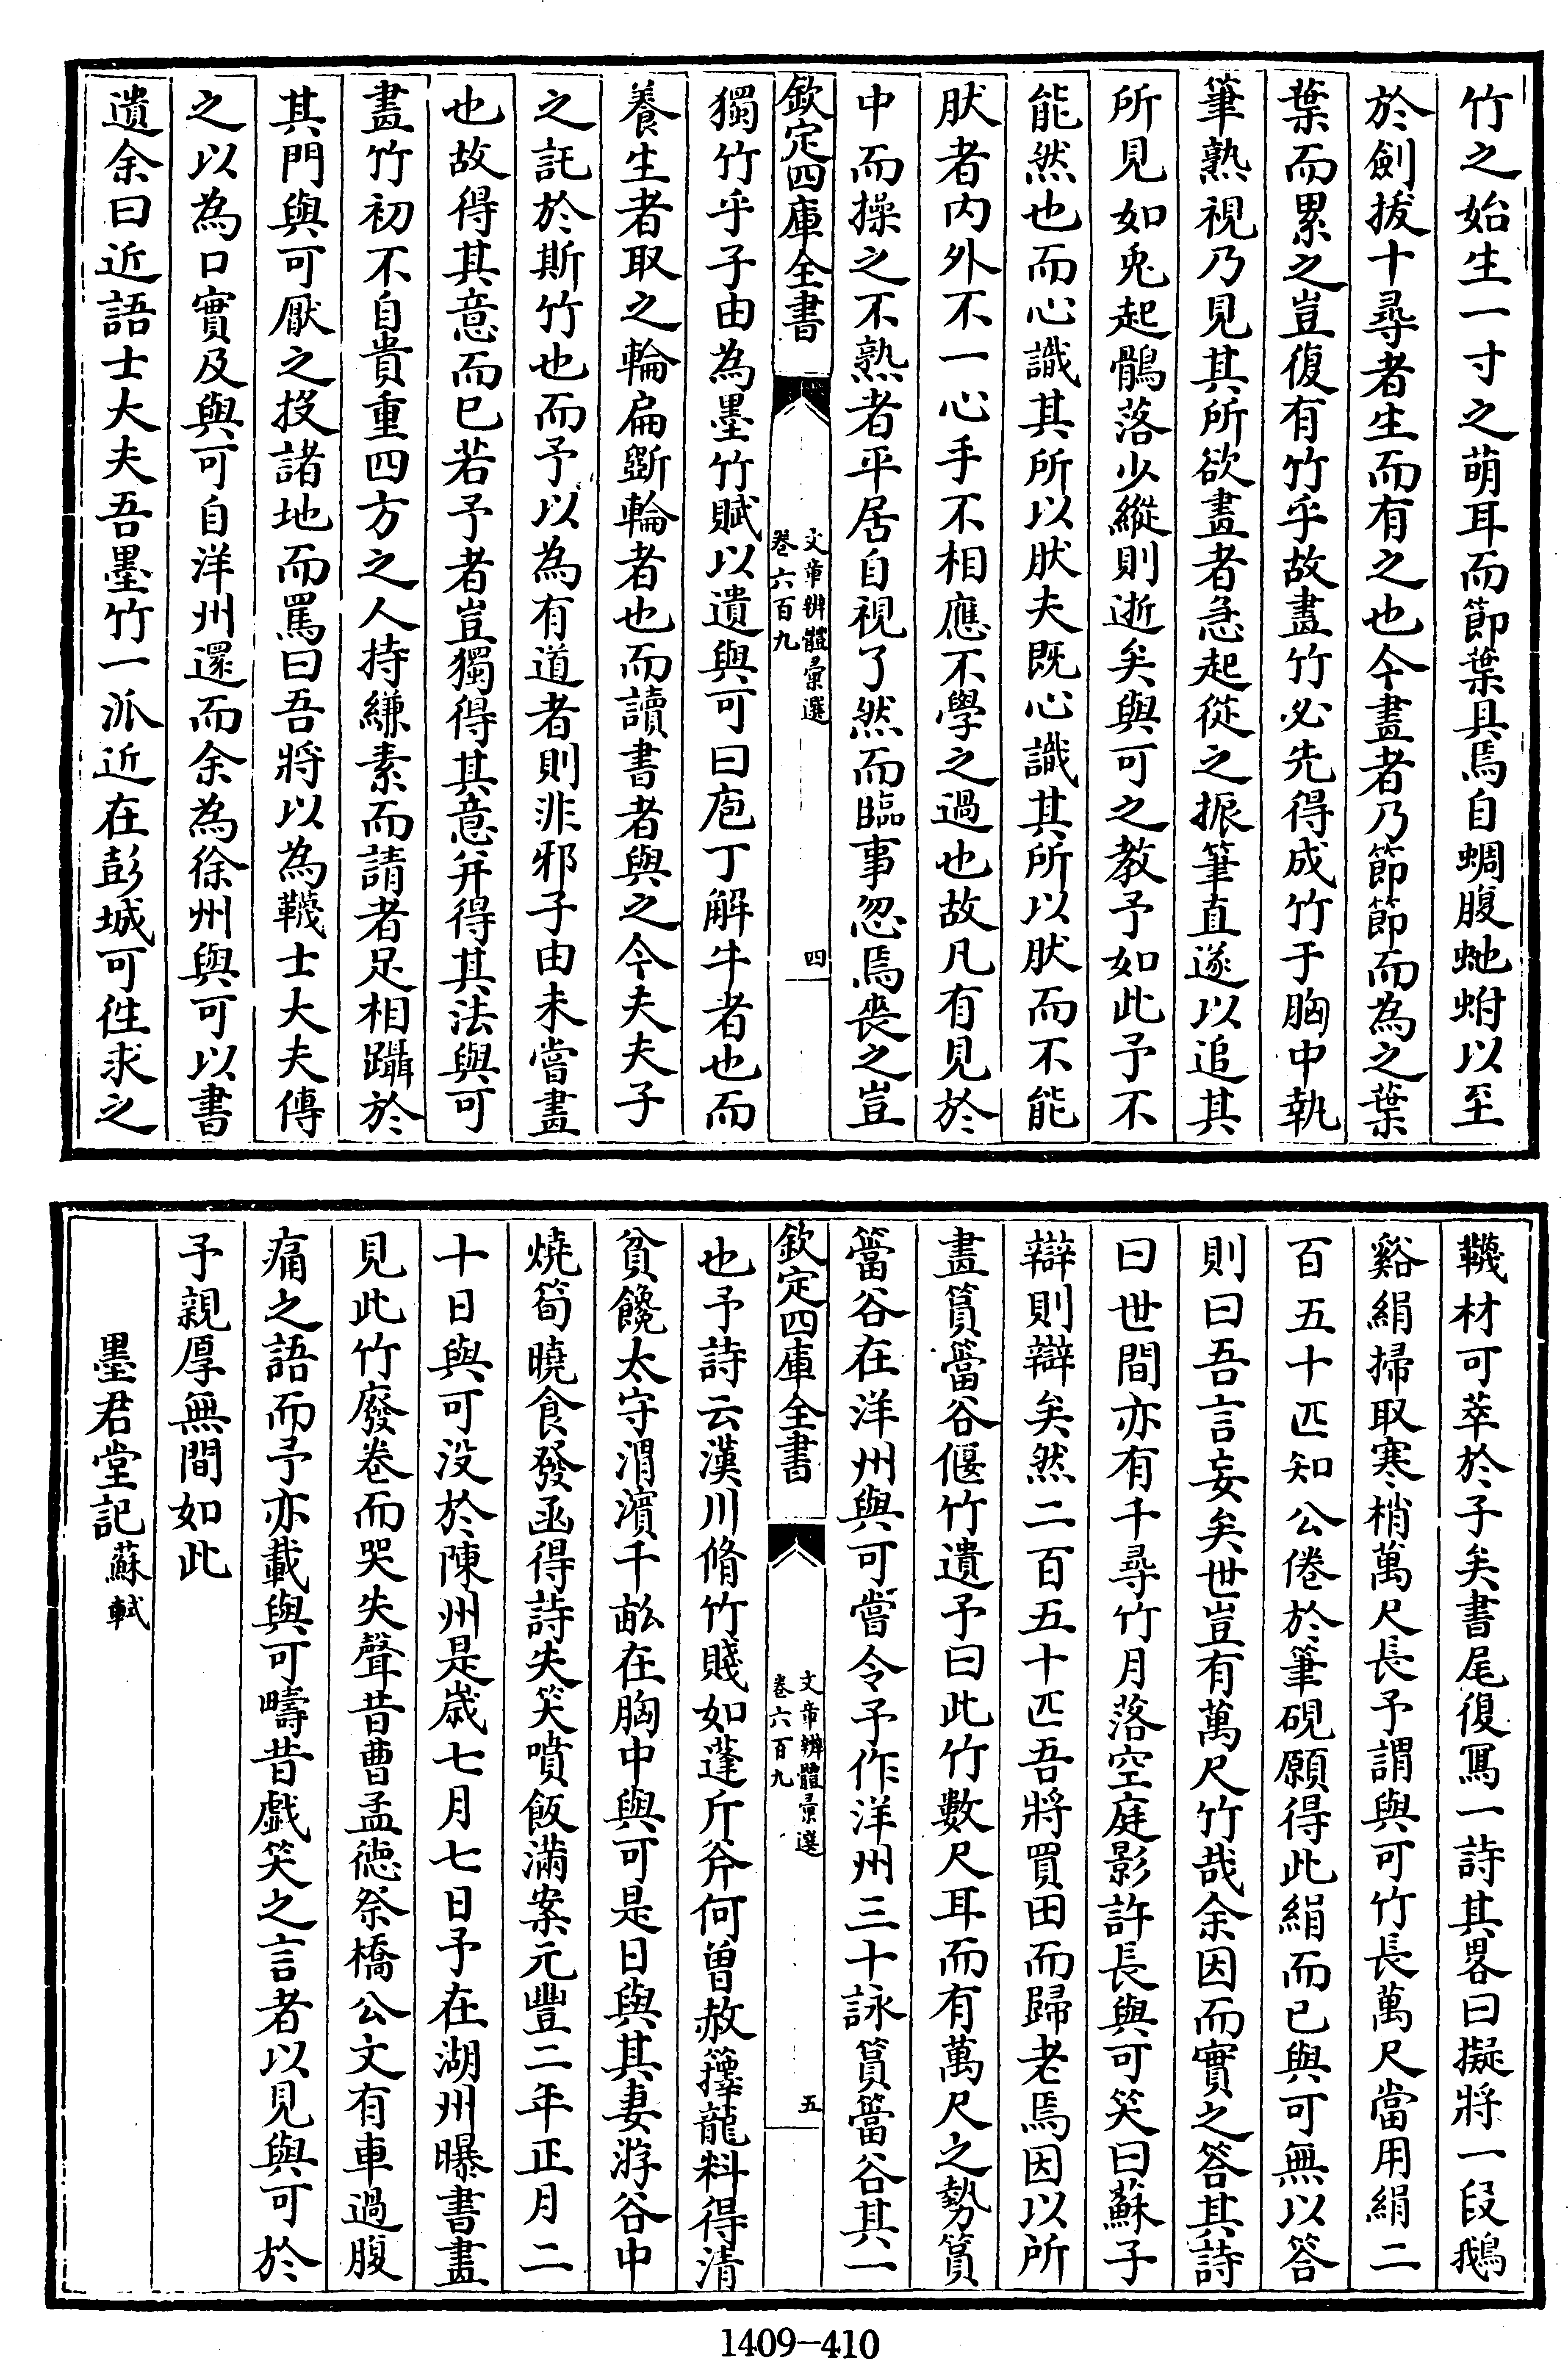 竹之始生一寸之萌耳而節葉具焉自蜩腹虵蚹以至
於劍拔十尋者生而有之也今畫者乃節節而為之葉
葉而累之豈復有竹乎故畫竹必先得成竹于胸中執
筆熟視乃見其所欲畫者急起從之振筆直遂以追其
所見如兎起鶻落少縱則逝矣與可之教予如此予不
能然也而心識其所以肰夫既心識其所以肰而不能
肰者内外不一心手不相應不學之過也故凡有見於
中而操之不熟者平居自視了然而臨事忽焉喪之豈
欽定四庫全書
文章辨體彙選
卷六百九
四
獨竹乎子由為墨竹賦以遺與可曰庖丁解牛者也而
養生者取之輪扁斵輪者也而讀書者與之今夫夫子
之託於斯竹也而予以為有道者則非邪子由未嘗畫
也故得其意而已若予者豈獨得其意并得其法與可
畫竹初不自貴重四方之人持縑素而請者足相躡於
其門與可厭之投諸地而罵曰吾將以為韈士大夫傳
之以為口實及與可自洋州還而余為徐州與可以書
遺余曰近語士大夫吾墨竹一派近在彭城可徃求之
韈材可萃於子矣書尾復冩一詩其畧曰擬將一段鵝
谿絹掃取寒梢萬尺長予謂與可竹長萬尺當用絹二
百五十匹知公倦於筆硯願得此絹而已與可無以答
則曰吾言妄矣世豈有萬尺竹哉余因而實之答其詩
曰世間亦有千尋竹月落空庭影許長與可笑曰蘇子
辯則辯矣然二百五十匹吾將買田而歸老焉因以所
畫篔簹谷偃竹遺予曰此竹數尺耳而有萬尺之勢篔
簹谷在洋州與可嘗令予作洋州三十詠篔簹谷其一
欽定四庫全書
文章辨體彙選
卷六百九
五
也予詩云漢川脩竹賤如蓬斤斧何曾赦籜龍料得清
貧饞太守渭濱千畝在胸中與可是日與其妻游谷中
燒筍曉食發函得詩失笑噴飯滿案元豐二年正月二
十日與可没於陳州是歳七月七日予在湖州曝書畫
見此竹廢卷而哭失聲昔曹孟徳祭橋公文有車過腹
痛之語而予亦載與可疇昔戯笑之言者以見與可於
予親厚無間如此
墨君堂記蘇軾
1409-410